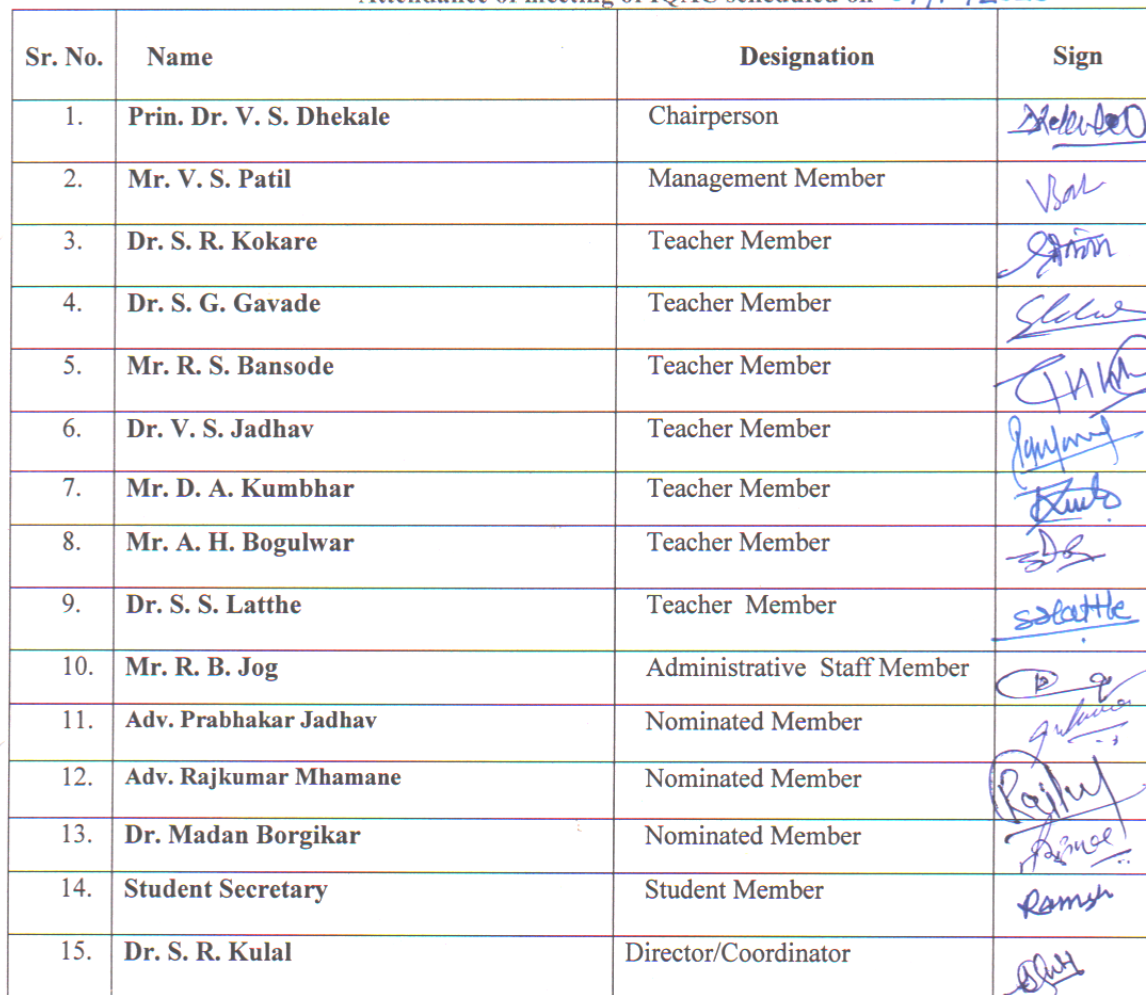 Attendance of meeting of IQAC scheduled on
Sr. No. Name Designation Sign
1. Prin. Dr. V. S. Dhekale Chairperson
2. Mr. V. S. Patil Management Member
3. Dr. S. R. Kokare Teacher Member
4. Dr. S. G. Gavade Teacher Member
5. Mr. R. S. Bansode Teacher Member
6. Dr. V. S. Jadhav Teacher Member
7. Mr. D. A. Kumbhar Teacher Member
8. Mr. A. H. Bogulwar Teacher Member
9. Dr. S. S. Latthe Teacher Member
10. Mr. R. B. Jog Administrative Staff Member
11. Adv. Prabhakar Jadhav Nominated Member
12. Adv. Rajkumar Mhamane Nominated Member
13. Dr. Madan Borgikar Nominated Member
14. Student Secretary Student Member
15. Dr. S. R. Kulal Director/Coordinator